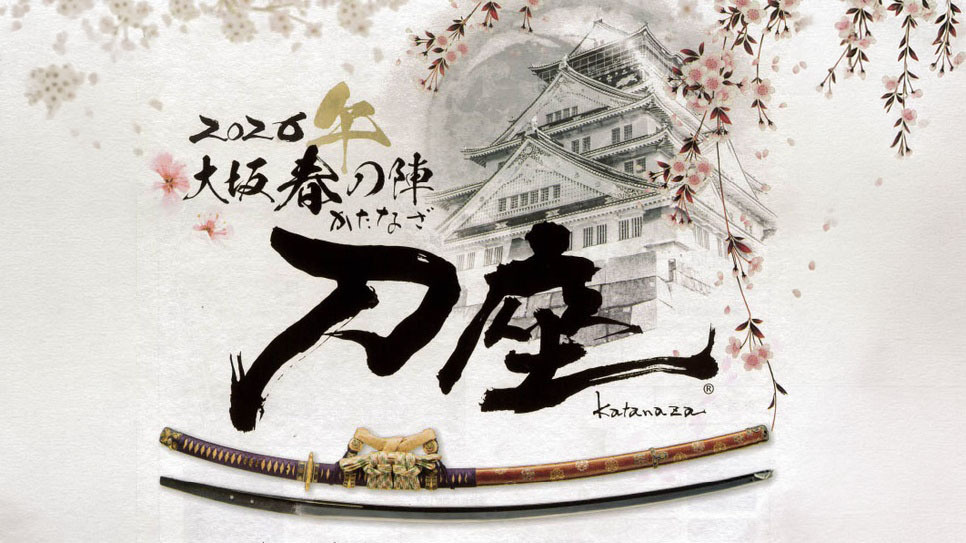 2026年
大坂春の陣
かたなざ
刀座
®
katanaza